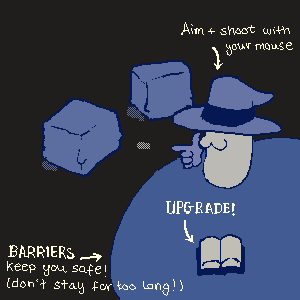 Aim + shoot with
your mouse
UPGRADE!
BARRIERS
keep you safe!
(don't stay for too long!)